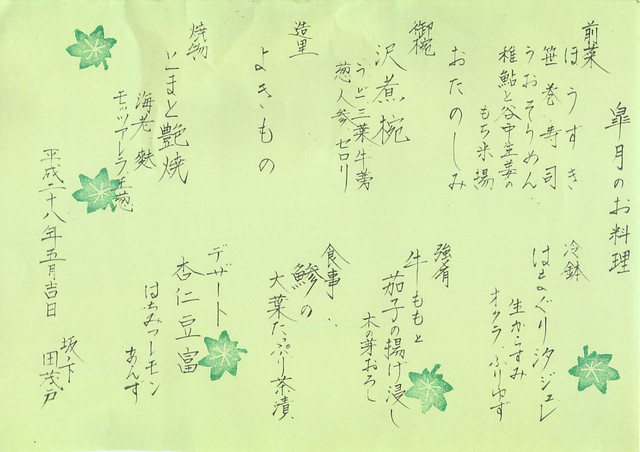 皐月のお料理
前菜
ほうずき
笹巻寿司
うおそうめん
稚鮎と谷中生姜の
もち米揚
おたのしみ
御椀
沢煮椀
うど三葉牛蒡
葱人参セロリ
造里
よきもの
焼物
とまと艶焼
海老 麩
モッツアレラ玉葱
冷鉢
はまぐり汐ジュレ
生からすみ
オクラ ふりゆず
強肴
牛ももと
茄子の揚げ浸し
木の芽おろし
食事
鯵の
大葉たっぷり茶漬
デザート
杏仁豆富
はちみつレモン
あんず
平成二十八年五月吉日
坂下
田茂戸